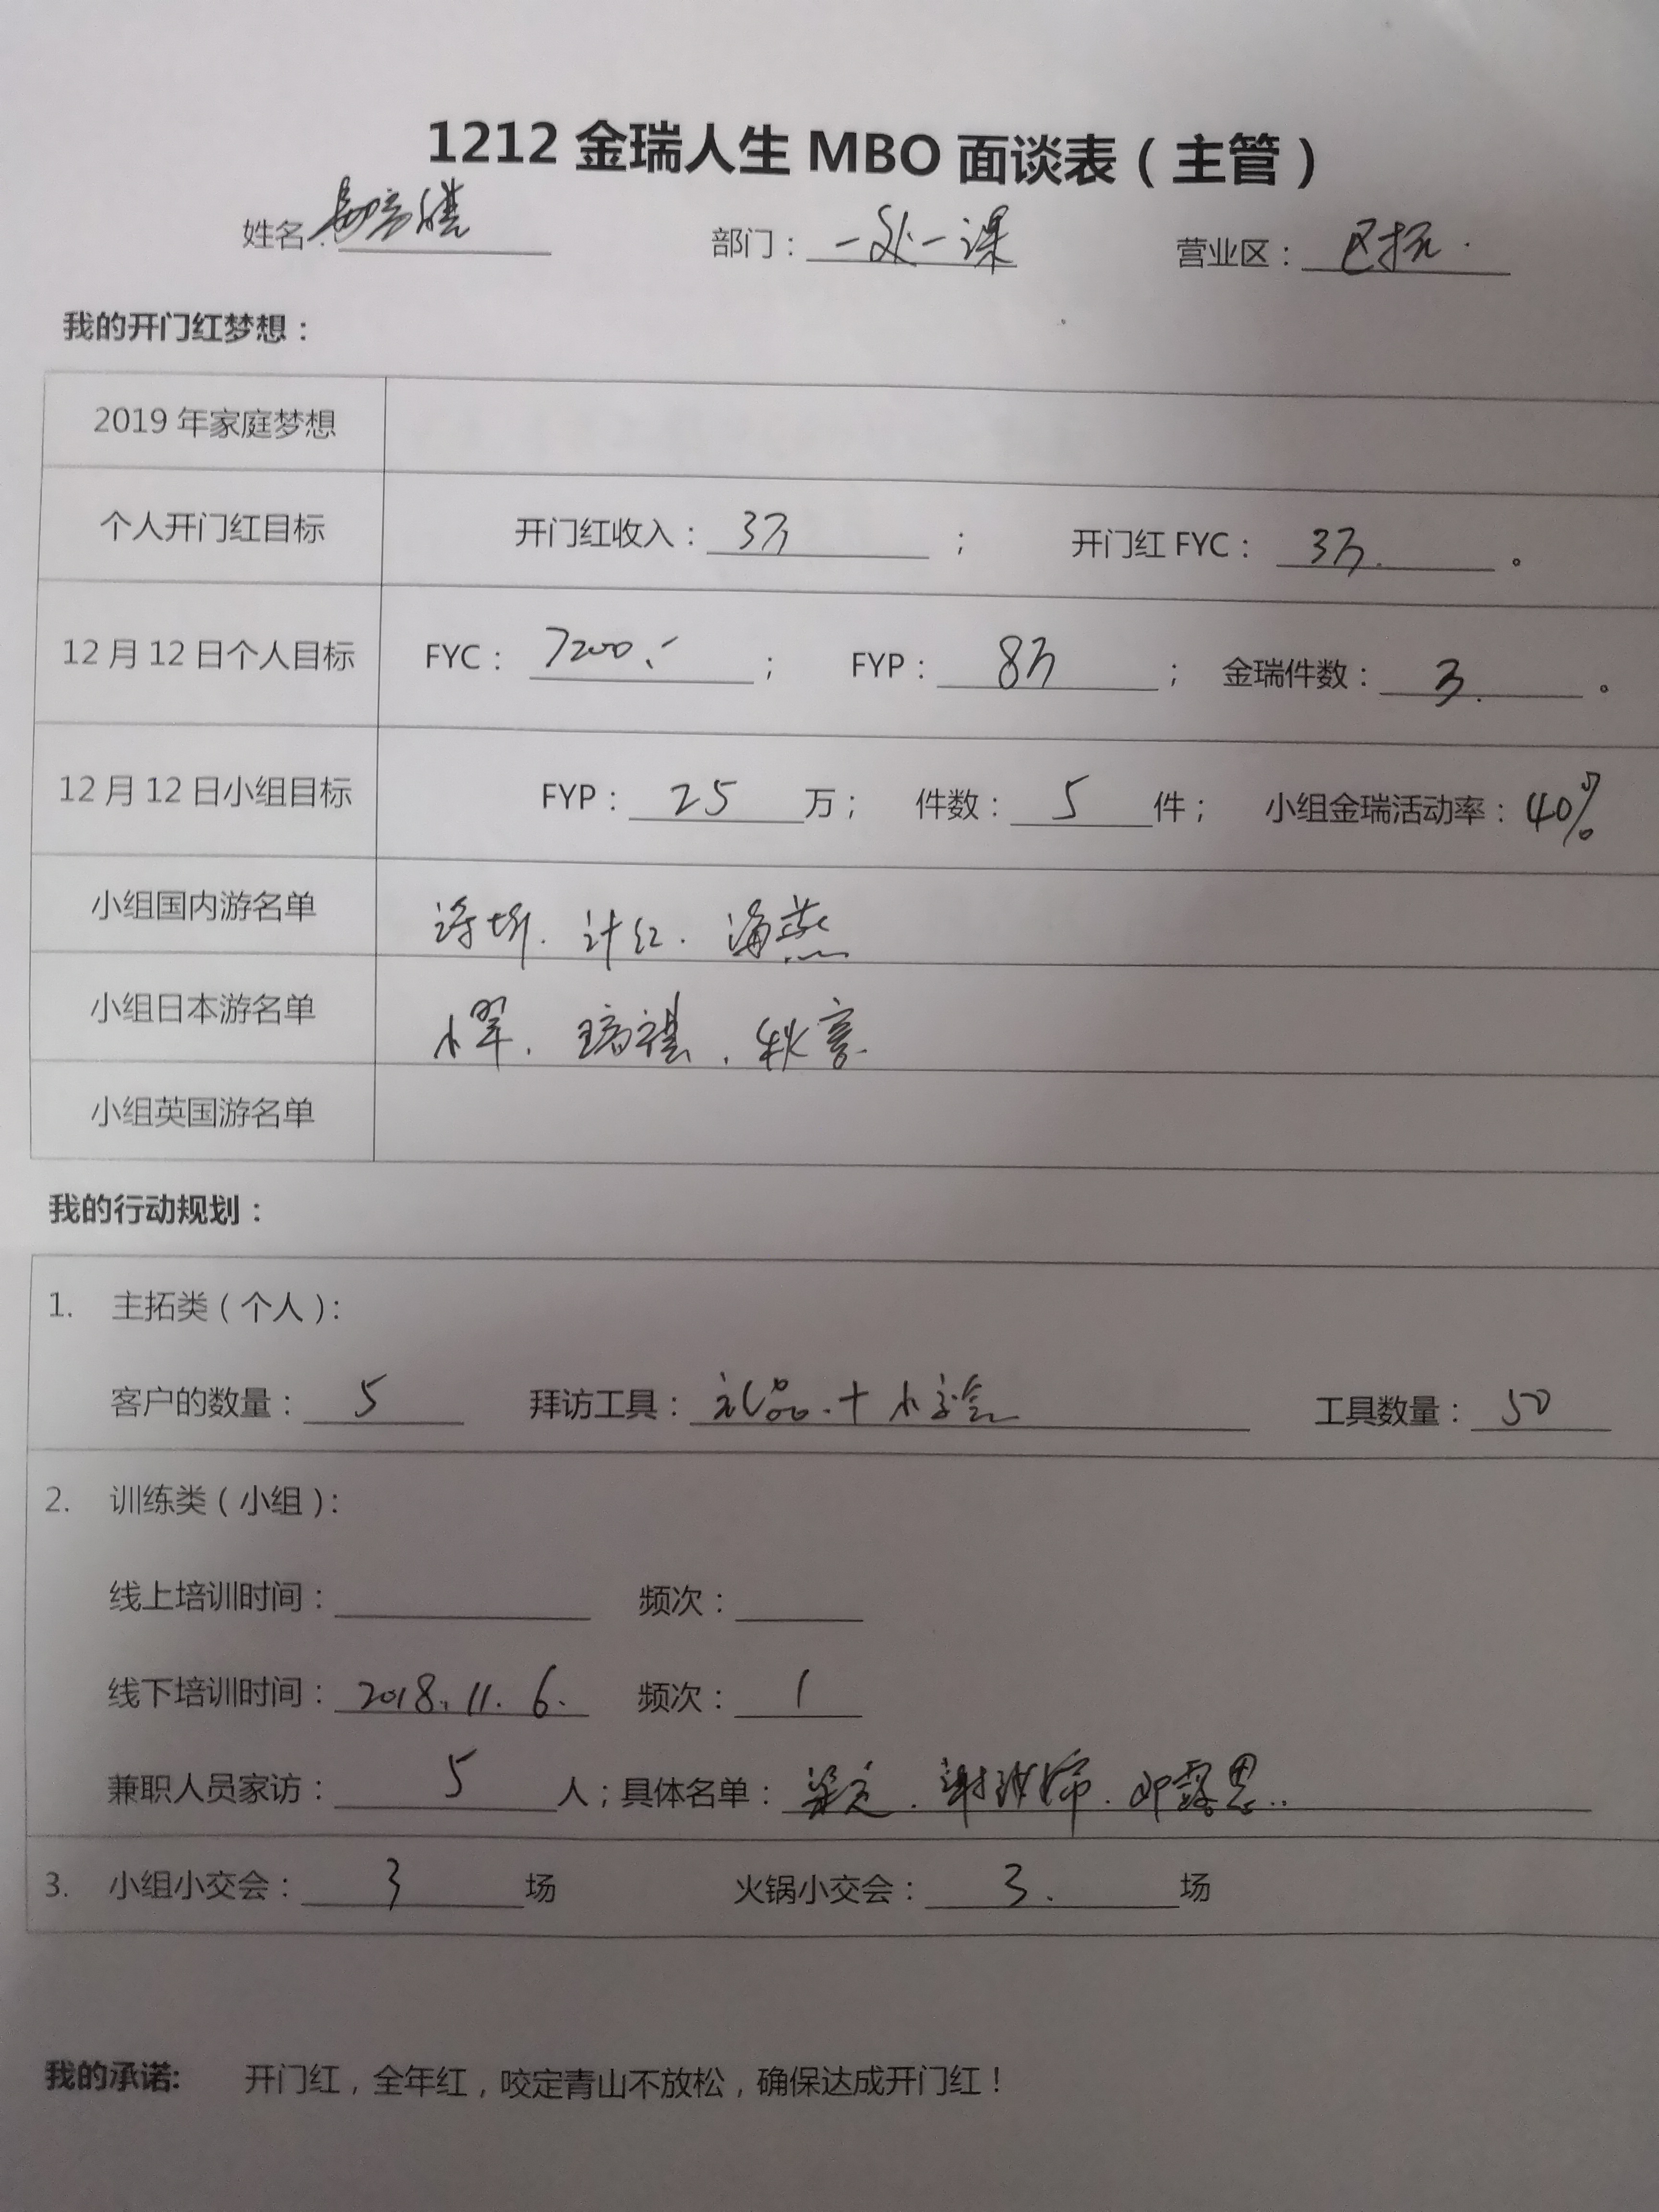 1212 金瑞人生 MBO 面谈表（主管）
姓名： 部门：一处一课 营业区：区拓.
我的开门红梦想：
2019 年家庭梦想
个人开门红目标 开门红收入：3万； 开门红 FYC：3万.。
12 月 12 日个人目标 FYC：7200.-； FYP：8万； 金瑞件数：3.。
12 月 12 日小组目标 FYP：25万； 件数：5件； 小组金瑞活动率：40%
小组国内游名单 计红. 海燕
小组日本游名单 小翠. 瑞祺. 
小组英国游名单
我的行动规划：
1. 主拓类（个人）：
客户的数量：5 拜访工具：礼品.+小 工具数量：50
2. 训练类（小组）：
线上培训时间： 频次：
线下培训时间：2018.11.6. 频次：1
兼职人员家访：5人；具体名单： 邓露思..
3. 小组小交会：3场 火锅小交会：3.场
我的承诺: 开门红，全年红，咬定青山不放松，确保达成开门红！